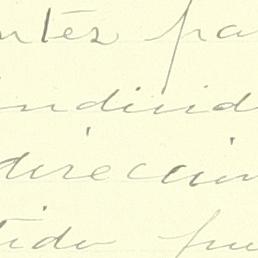 ntes pa
individ
direccion
tido fue